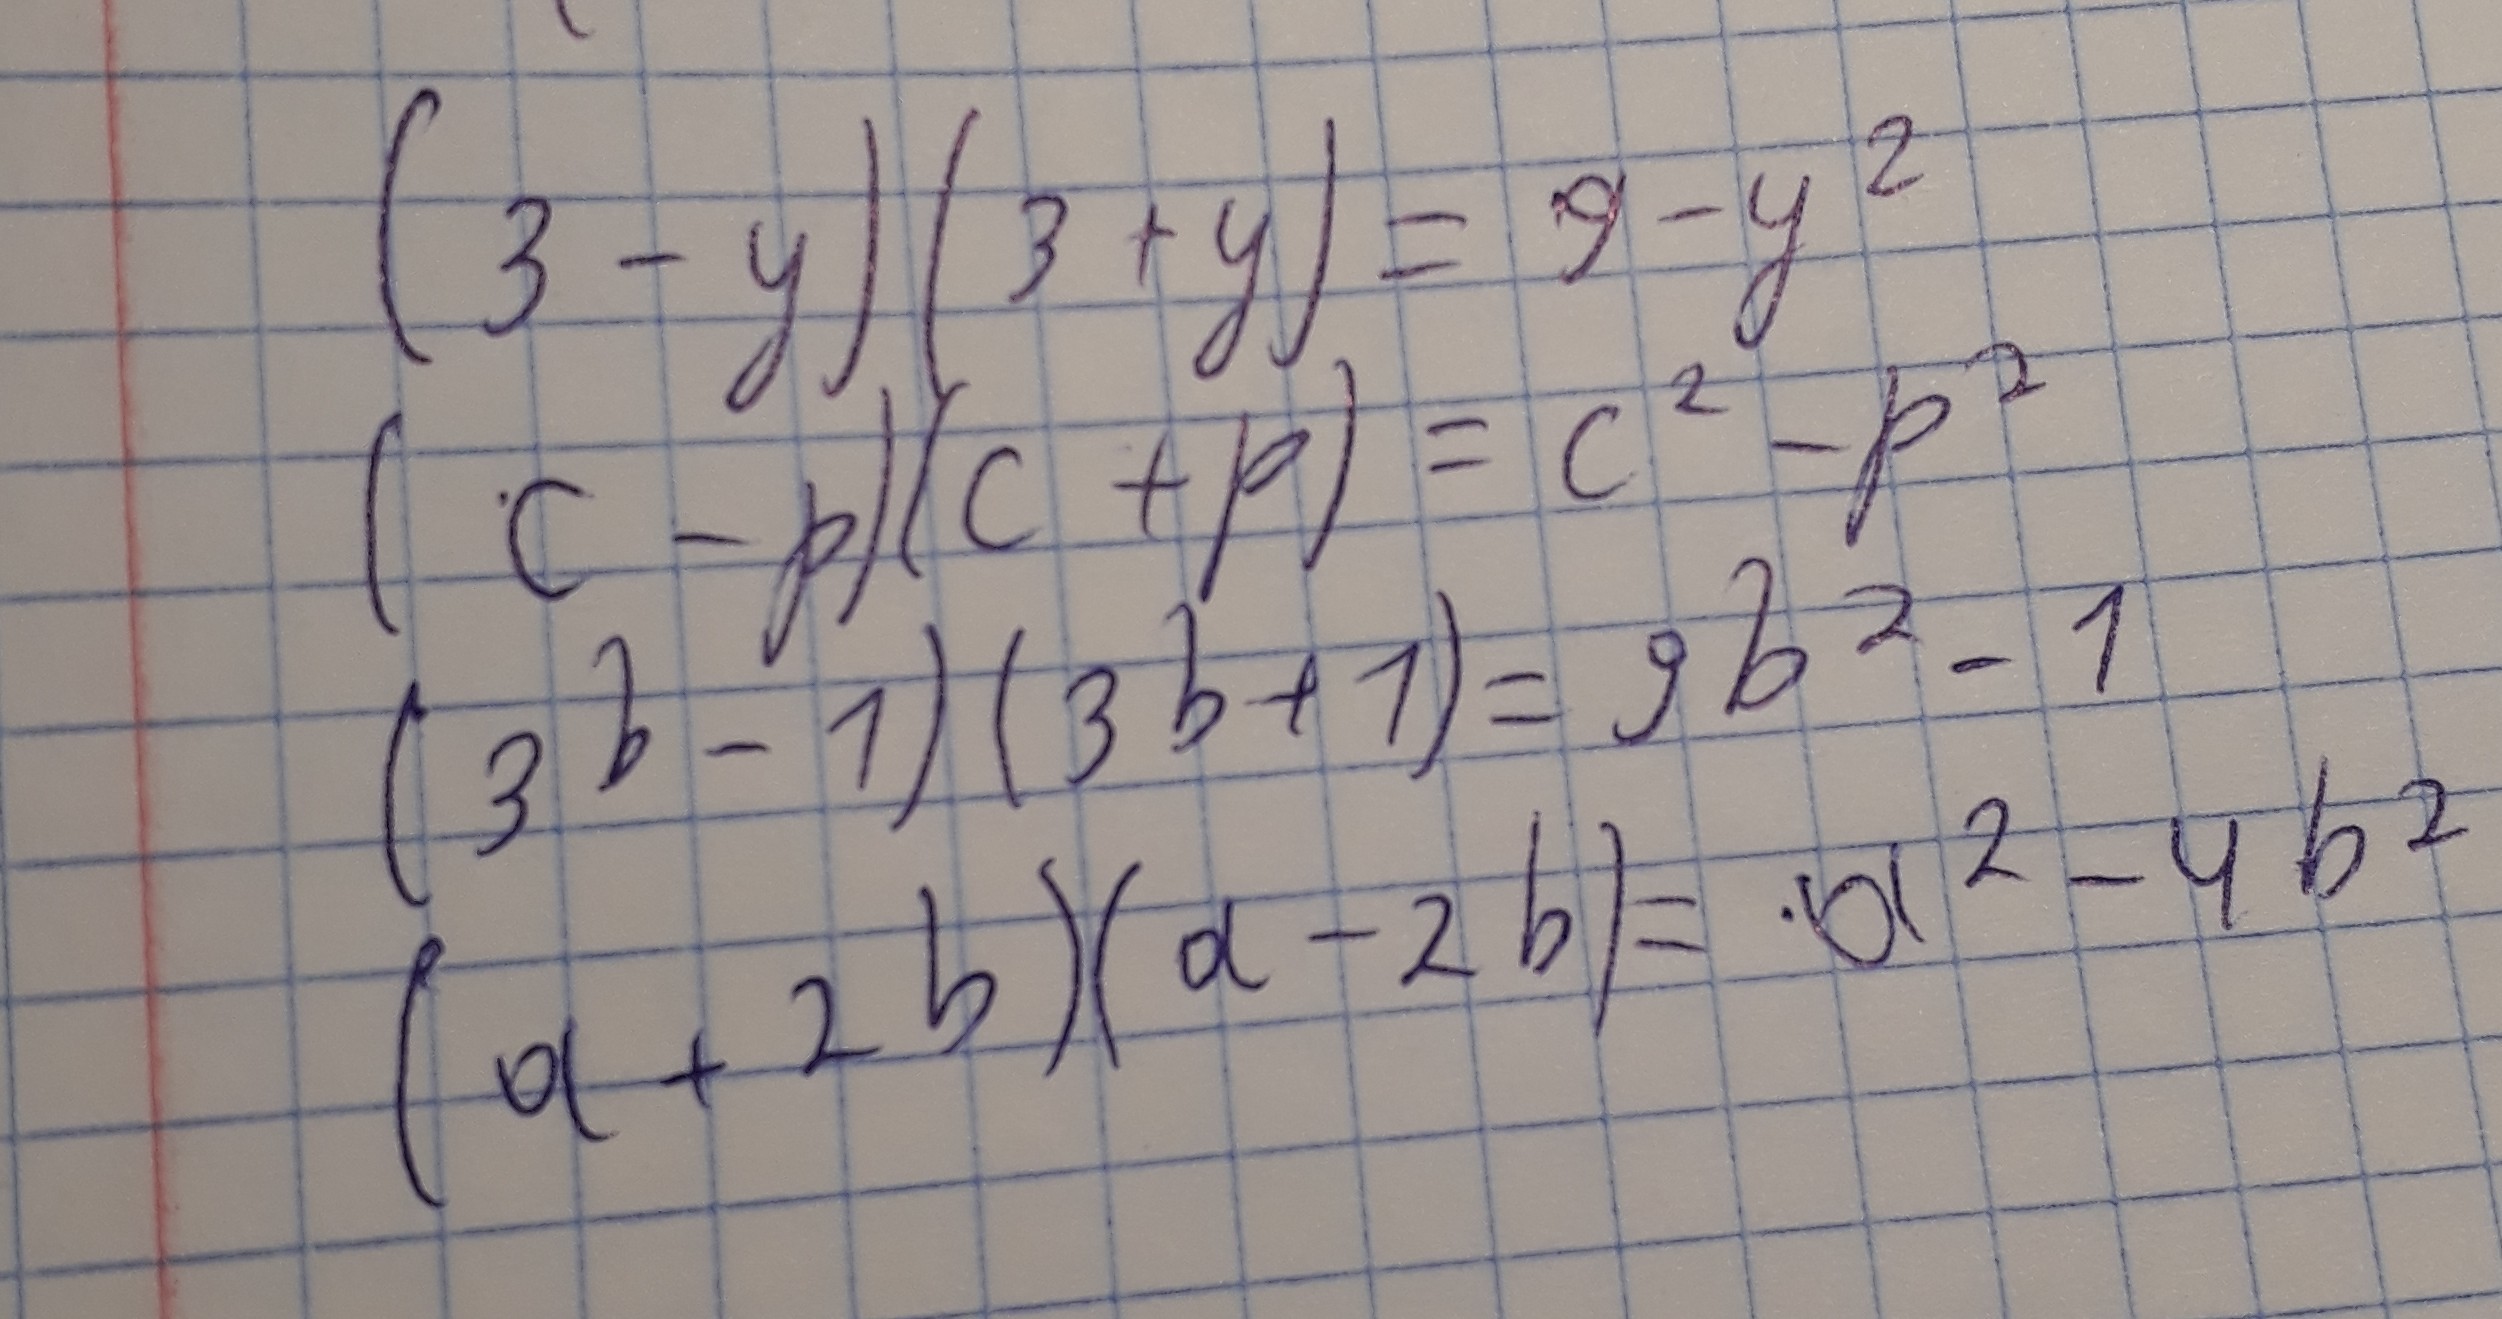 (3 - y)(3 + y) = 9 - y²
(c - p)(c + p) = c² - p²
(3b - 1)(3b + 1) = 9b² - 1
(a + 2b)(a - 2b) = a² - 4b²